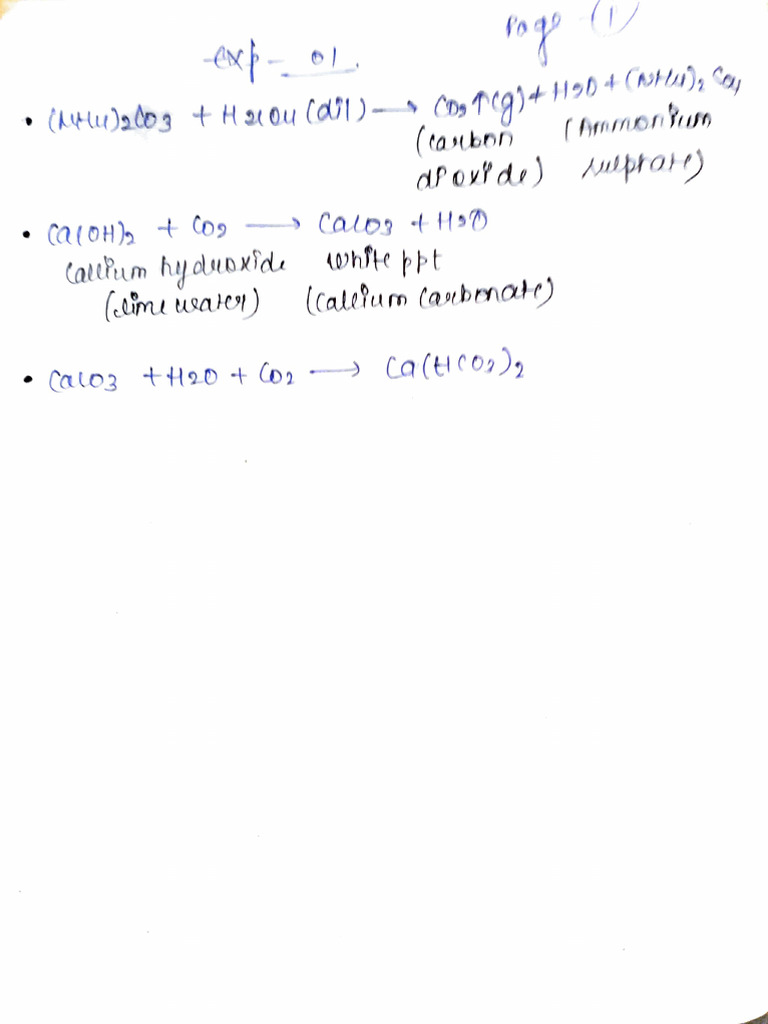 Page (1)
exp - 01.
• (NH4)2CO3 + H2SO4 (dil) ⟶ CO2↑(g) + H2O + (NH4)2 SO4
(carbon (Ammonium
dioxide) sulphate)
• Ca(OH)2 + CO2 ⟶ CaCO3 + H2O
Calcium hydroxide white ppt
(lime water) (Calcium Carbonate)
• CaCO3 + H2O + CO2 ⟶ Ca(HCO3)2